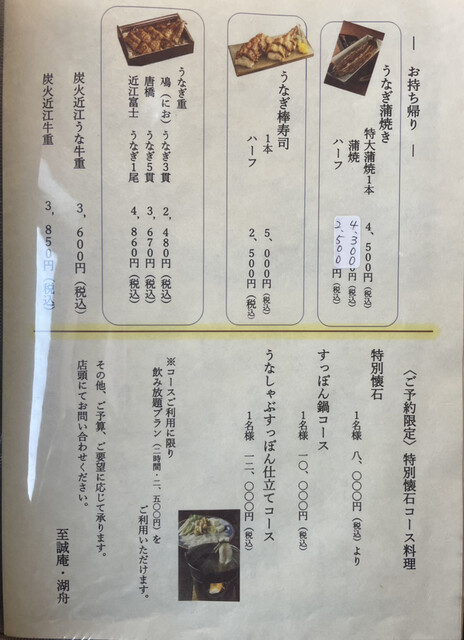 ― お持ち帰り ―
うなぎ蒲焼き
特大蒲焼1本 4,500円（税込）
蒲焼 4,300円（税込）
ハーフ 2,500円（税込）
うなぎ棒寿司
1本 5,000円（税込）
ハーフ 2,500円（税込）
うなぎ重
鳰（にお） うなぎ3貫 2,480円（税込）
唐橋 うなぎ5貫 3,670円（税込）
近江富士 うなぎ1尾 4,860円（税込）
炭火近江うな牛重 3,600円（税込）
炭火近江牛重 3,850円（税込）
〈ご予約限定〉特別懐石コース料理
特別懐石
1名様 八、〇〇〇円（税込）より
すっぽん鍋コース
1名様 一〇、〇〇〇円（税込）
うなしゃぶすっぽん仕立てコース
1名様 一二、〇〇〇円（税込）
※コースご利用に限り
飲み放題プラン（二時間・二、五〇〇円）を
ご利用いただけます。
その他、ご予算、ご要望に応じて承ります。
店頭にてお問い合わせください。
至誠庵・湖舟